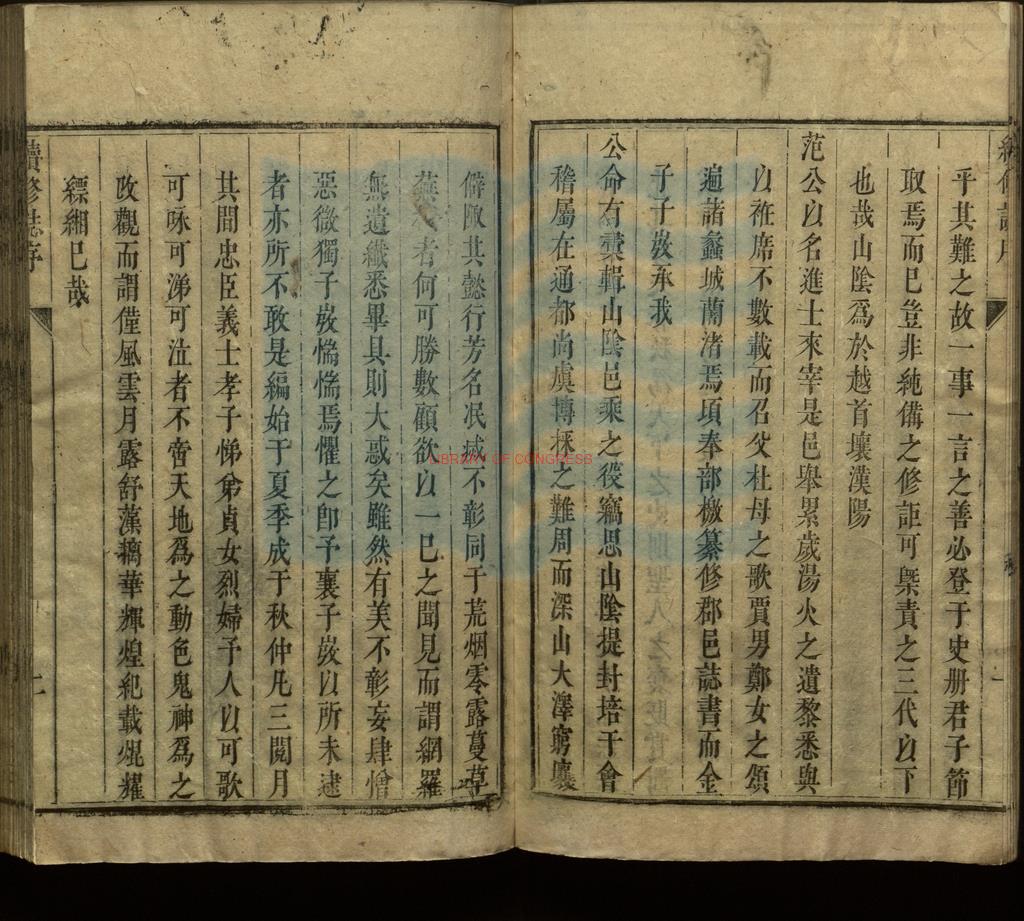 平其難之故一事一言之善必登于史册君子節
取焉而已豈非純備之修詎可槩責之三代以下
也哉山陰爲於越首壤漢陽
范公以名進士來宰是邑舉累歲湯火之遺黎悉與
以袵席不數載而召父杜母之歌賈男鄭女之頌
遍諸蠡城蘭渚焉頃奉部檄纂修郡邑誌書而金
子子㪅承我
公命有彙輯山陰邑乘之役竊思山陰提封埒于會
稽屬在通都尚虞博採之難周而深山大澤窮壤
僻陬其懿行芳名泯滅不彰同于荒烟零露蔓草
蕪 者何可勝數顧欲以一已之聞見而謂網羅
無遺纖悉畢具則大惑矣雖然有美不彰妄肆憎
惡微獨子㪅惴惴焉懼之卽予襄子㪅以所未逮
者亦所不敢是編始于夏季成于秋仲凡三閱月
其間忠臣義士孝子悌弟貞女烈婦予人以可歌
可咏可涕可泣者不啻天地爲之動色鬼神爲之
改觀而謂僅風雲月露舒藻摛華輝煌紀載焜耀
縹緗已哉
續修誌序
LIBRARY OF CONGRESS